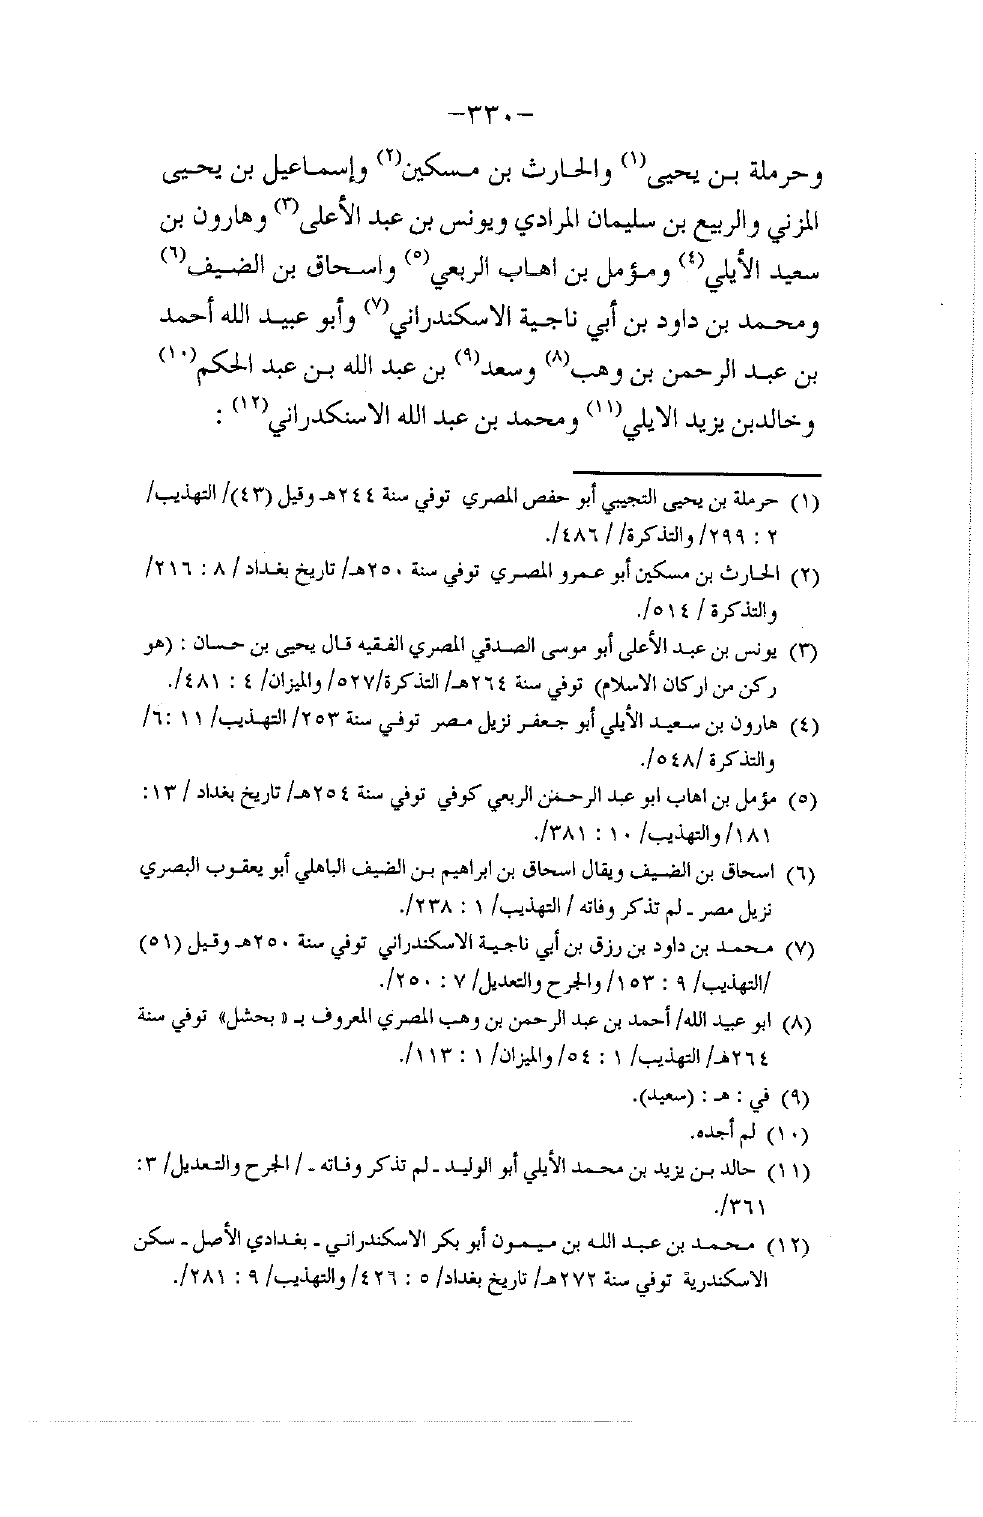 -٣٣٠-
وحرملة بن يحيى(١) والحارث بن مسكين(٢) وإسماعيل بن يحيى
المزني والربيع بن سليمان المرادي ويونس بن عبد الأعلى(٣) وهارون بن
سعيد الأيلي(٤) ومؤمل بن اهاب الربعي(٥) واسحاق بن الضيف(٦)
ومحمد بن داود بن أبي ناجية الاسكندراني(٧) وأبو عبيد الله أحمد
بن عبد الرحمن بن وهب(٨) وسعد(٩) بن عبد الله بن عبد الحكم(١٠)
وخالدبن يزيد الايلي(١١) ومحمد بن عبد الله الاسنكدراني(١٢) :
(١) حرملة بن يحيى التجيبي أبو حفص المصري توفي سنة ٢٤٤هـ وقيل (٤٣)/ التهذيب/
٢ : ٢٩٩/ والتذكرة/ / ٤٨٦/.
(٢) الحارث بن مسكين أبو عمرو المصري توفي سنة ٢٥٠هـ/ تاريخ بغداد / ٨ : ٢١٦/
والتذكرة / ٥١٤/.
(٣) يونس بن عبد الأعلى أبو موسى الصدقي المصري الفقيه قال يحيى بن حسان : (هو
ركن من اركان الاسلام) توفي سنة ٢٦٤هـ/ التذكرة/٥٢٧/ والميزان/ ٤ : ٤٨١/.
(٤) هارون بن سعيد الأيلي أبو جعفر نزيل مصر توفي سنة ٢٥٣/ التهذيب/ ١١ :٦/
والتذكرة /٥٤٨/.
(٥) مؤمل بن اهاب ابو عبد الرحمن الربعي كوفي توفي سنة ٢٥٤هـ/ تاريخ بغداد / ١٣:
١٨١/ والتهذيب/ ١٠ : ٣٨١/.
(٦) اسحاق بن الضيف ويقال اسحاق بن ابراهيم بن الضيف الباهلي أبو يعقوب البصري
نزيل مصر ـ لم تذكر وفاته / التهذيب/ ١ : ٢٣٨/.
(٧) محمد بن داود بن رزق بن أبي ناجية الاسكندراني توفي سنة ٢٥٠هـ وقيل (٥١)
/التهذيب/ ٩ : ١٥٣/ والجرح والتعديل/ ٧ : ٢٥٠/.
(٨) ابو عبيد الله/ أحمد بن عبد الرحمن بن وهب المصري المعروف بـ « بحشل» توفي سنة
٢٦٤هـ/ التهذيب/ ١ : ٥٤/ والميزان/ ١ : ١١٣/.
(٩) في : هـ : (سعيد).
(١٠) لم أجده.
(١١) حالد بن يزيد بن محمد الأيلي أبو الوليد ـ لم تذكر وفاته ـ / الجرح والتعديل/ ٣:
٣٦١/.
(١٢) محمد بن عبد الله بن ميمون أبو بكر الاسكندراني ـ بغدادي الأصل ـ سكن
الاسكندرية توفي سنة ٢٧٢هـ/ تاريخ بغداد/ ٥ : ٤٢٦/ والتهذيب/ ٩ : ٢٨١/.